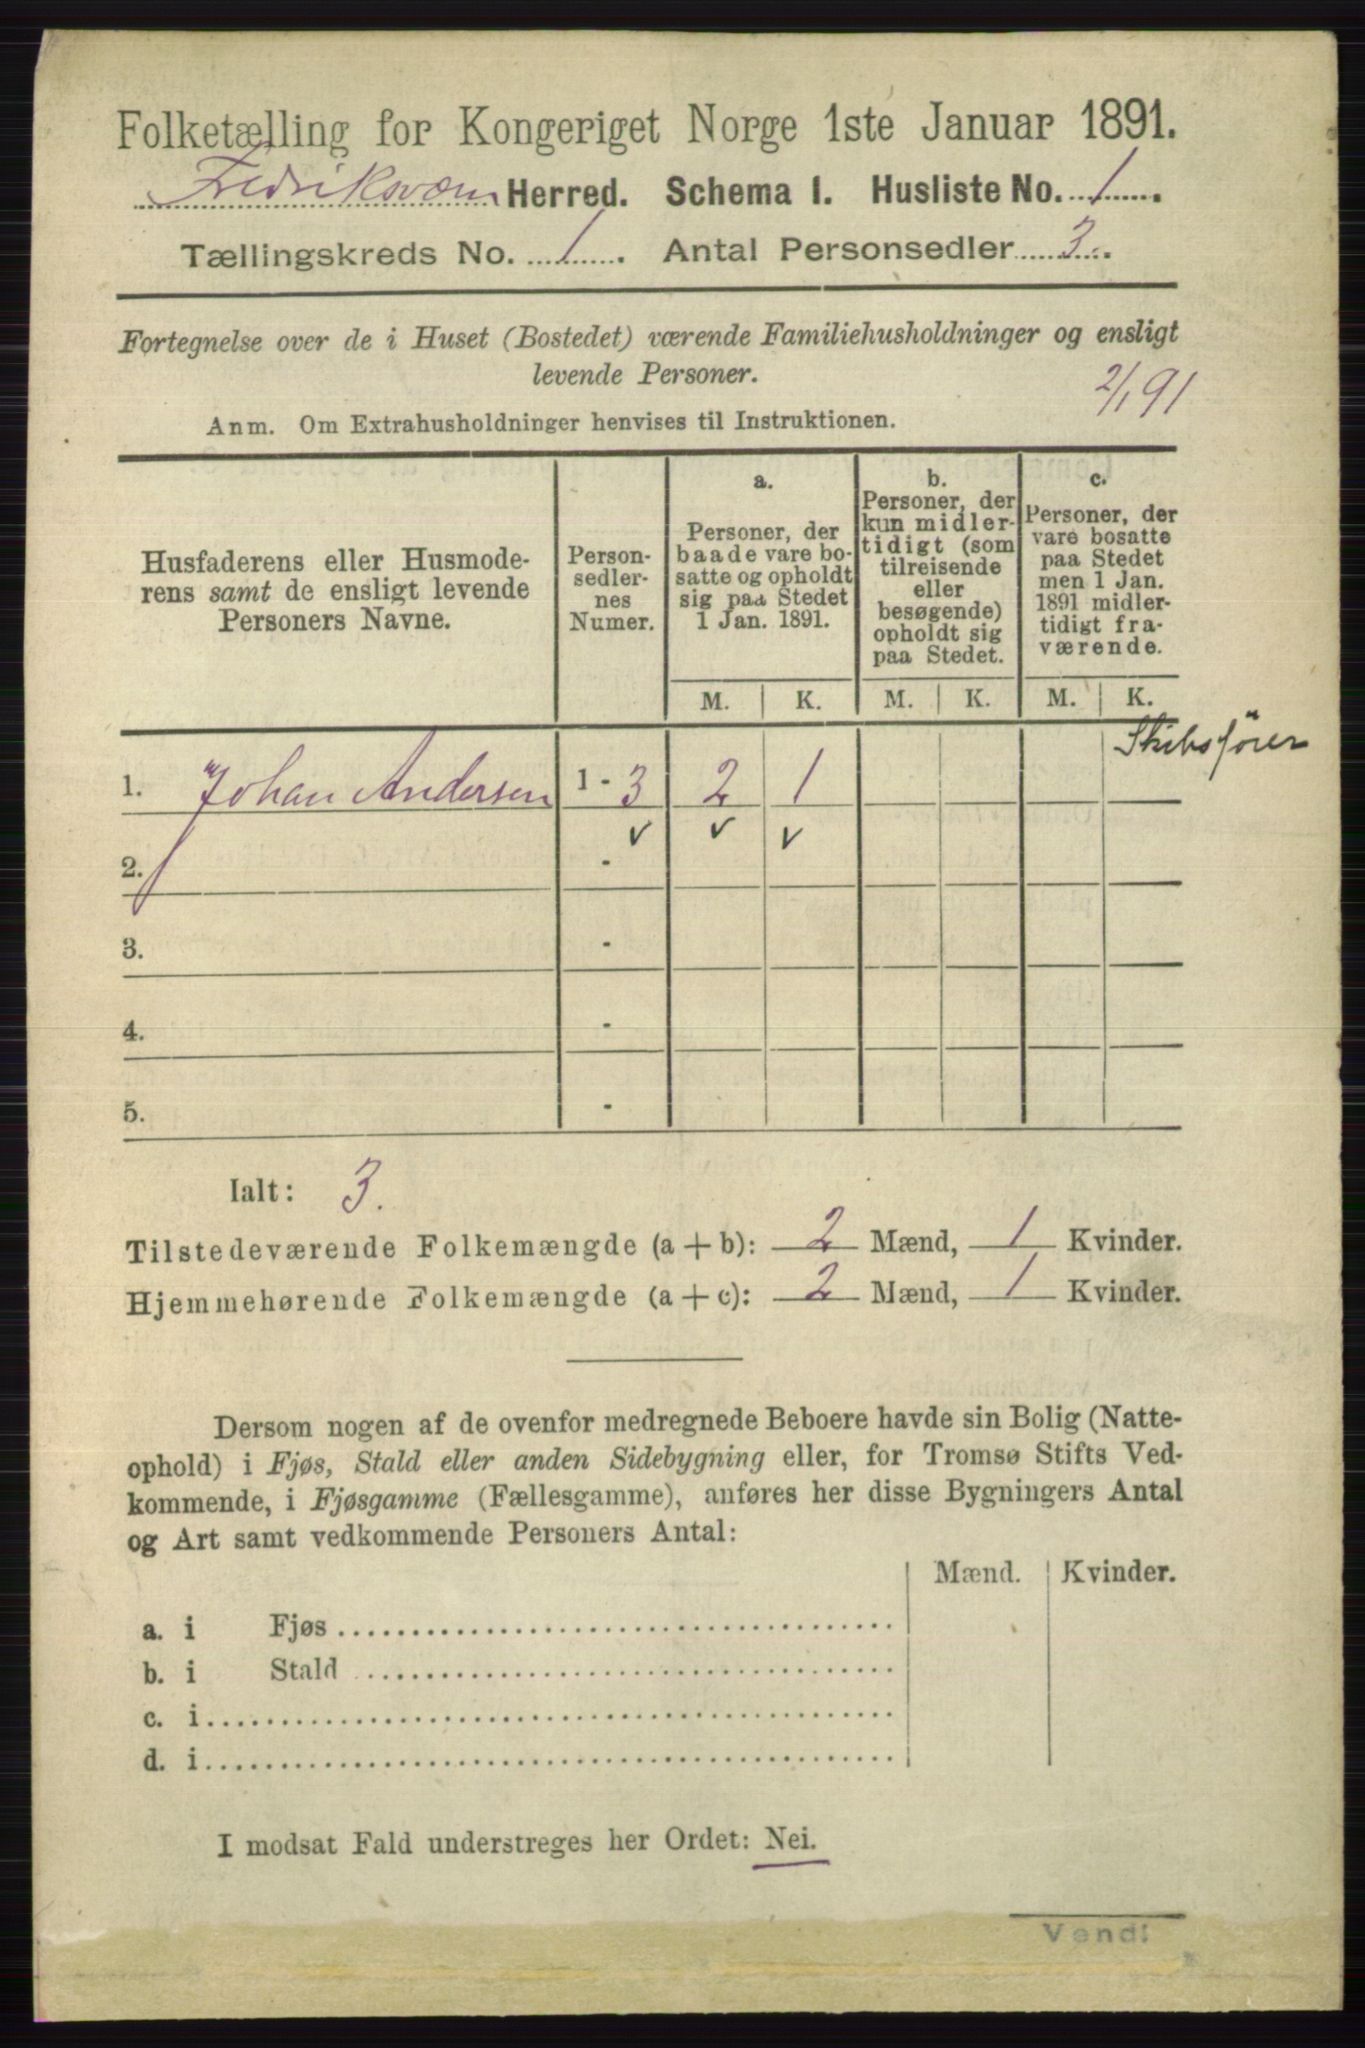 Folketælling for Kongeriget Norge 1ste Januar 1891.
Fredriksværn Herred. Schema I. Husliste No. 1.
Tællingskreds No. 1. Antal Personsedler 3.
Fortegnelse over de i Huset (Bostedet) værende Familiehusholdninger og ensligt
levende Personer.
2/1 91
Anm. Om Extrahusholdninger henvises til Instruktionen.
Husfaderens eller Husmode-
rens samt de ensligt levende
Personers Navne.
Person-
sedler-
nes
Numer.
a.
Personer, der
baade vare bo-
satte og opholdt
sig paa Stedet
1 Jan. 1891.
b.
Personer, der
kun midler-
tidigt (som
tilreisende
eller
besøgende)
opholdt sig
paa Stedet.
c.
Personer, der
vare bosatte
paa Stedet
men 1 Jan.
1891 midler-
tidigt fra-
værende.
M. K. M. K. M. K.
Skibsfører
1. Johan Andersen 1 - 3 2 1
2. -
3. -
4. -
5. -
Ialt: 3.
Tilstedeværende Folkemængde (a + b): 2 Mænd, 1 Kvinder.
Hjemmehørende Folkemængde (a + c): 2 Mænd, 1 Kvinder.
Dersom nogen af de ovenfor medregnede Beboere havde sin Bolig (Natte-
ophold) i Fjøs, Stald eller anden Sidebygning eller, for Tromsø Stifts Ved-
kommende, i Fjøsgamme (Fællesgamme), anføres her disse Bygningers Antal
og Art samt vedkommende Personers Antal:
Mænd. Kvinder.
a. i Fjøs
b. i Stald
c. i
d. i
I modsat Fald understreges her Ordet: Nei.
Vend!